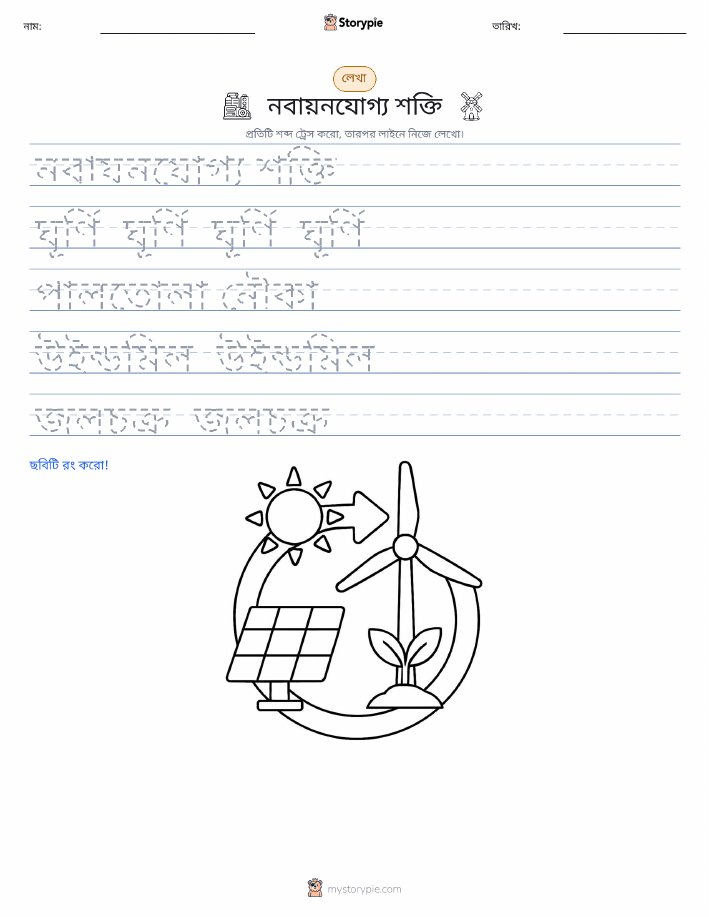 নাম:
Storypie
তারিখ:
লেখা
নবায়নযোগ্য শক্তি
প্রতিটি শব্দ ট্রেস করো, তারপর লাইনে নিজে লেখো।
নবায়নযোগ্য শক্তি
ঘূর্ণি ঘূর্ণি ঘূর্ণি ঘূর্ণি
পালতোলা নৌকা
উইন্ডমিল উইন্ডমিল
জলচক্র জলচক্র
ছবিটি রং করো!
mystorypie.com